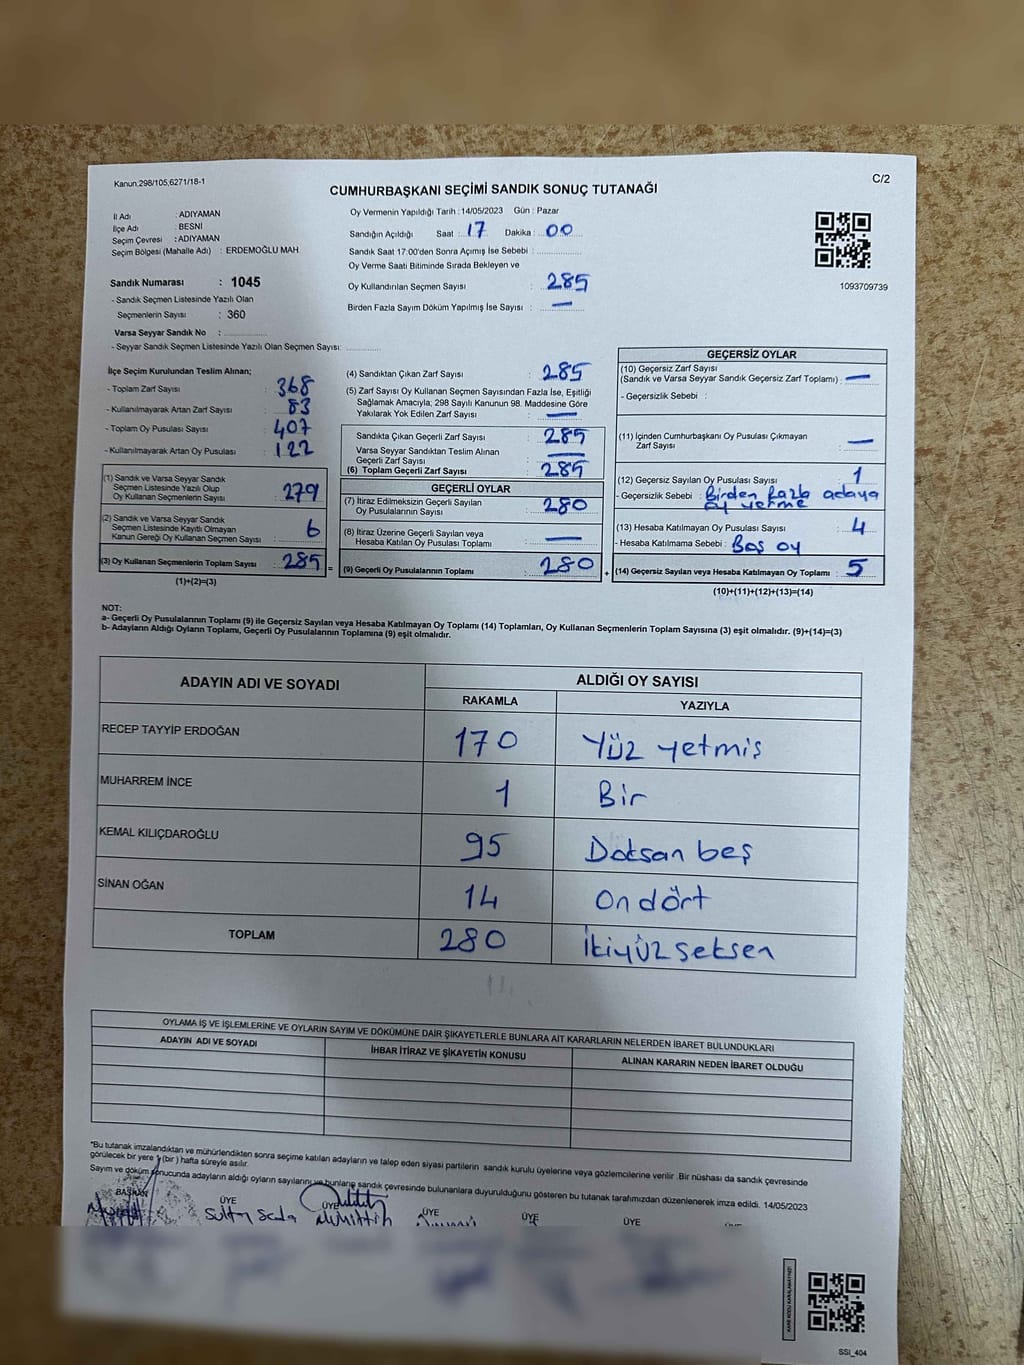 Kanun.298/105,6271/18-1
C/2
CUMHURBAŞKANI SEÇİMİ SANDIK SONUÇ TUTANAĞI
İl Adı : ADIYAMAN
İlçe Adı : BESNİ
Seçim Çevresi : ADIYAMAN
Seçim Bölgesi (Mahalle Adı) : ERDEMOĞLU MAH.
Sandık Numarası : 1045
- Sandık Seçmen Listesinde Yazılı Olan
Seçmenlerin Sayısı : 360
Varsa Seyyar Sandık No :
- Seyyar Sandık Seçmen Listesinde Yazılı Olan Seçmen Sayısı:
Oy Vermenin Yapıldığı Tarih : 14/05/2023 Gün : Pazar
Sandığın Açıldığı Saat : 17 Dakika : 00
Sandık Saat 17:00'den Sonra Açımış İse Sebebi :
Oy Verme Saati Bitiminde Sırada Bekleyen ve
Oy Kullandırılan Seçmen Sayısı : 285
Birden Fazla Sayım Döküm Yapılmış İse Sayısı : —
1093709739
İlçe Seçim Kurulundan Teslim Alınan;
- Toplam Zarf Sayısı : 368
- Kullanılmayarak Artan Zarf Sayısı : 83
- Toplam Oy Pusulası Sayısı : 407
- Kullanılmayarak Artan Oy Pusulası : 122
(1) Sandık ve Varsa Seyyar Sandık
Seçmen Listesinde Yazılı Olup
Oy Kullanan Seçmenlerin Sayısı : 279
(2) Sandık ve Varsa Seyyar Sandık
Seçmen Listesinde Kayıtlı Olmayan
Kanun Gereği Oy Kullanan Seçmen Sayısı : 6
(3) Oy Kullanan Seçmenlerin Toplam Sayısı : 285 =
(1)+(2)=(3)
(4) Sandıktan Çıkan Zarf Sayısı : 285
(5) Zarf Sayısı Oy Kullanan Seçmen Sayısından Fazla İse, Eşitliği
Sağlamak Amacıyla; 298 Sayılı Kanunun 98. Maddesine Göre
Yakılarak Yok Edilen Zarf Sayısı : —
Sandıkta Çıkan Geçerli Zarf Sayısı : 285
Varsa Seyyar Sandıktan Teslim Alınan
Geçerli Zarf Sayısı : —
(6) Toplam Geçerli Zarf Sayısı : 285
GEÇERLİ OYLAR
(7) İtiraz Edilmeksizin Geçerli Sayılan
Oy Pusulalarının Sayısı : 280
(8) İtiraz Üzerine Geçerli Sayılan veya
Hesaba Katılan Oy Pusulası Toplamı : —
(9) Geçerli Oy Pusulalarının Toplamı : 280 +
GEÇERSİZ OYLAR
(10) Geçersiz Zarf Sayısı
(Sandık ve Varsa Seyyar Sandık Geçersiz Zarf Toplamı) : —
- Geçersizlik Sebebi :
(11) İçinden Cumhurbaşkanı Oy Pusulası Çıkmayan
Zarf Sayısı : —
(12) Geçersiz Sayılan Oy Pusulası Sayısı : 1
- Geçersizlik Sebebi : Birden fazla adaya
oy verme
(13) Hesaba Katılmayan Oy Pusulası Sayısı : 4
- Hesaba Katılmama Sebebi : Boş oy
(14) Geçersiz Sayılan veya Hesaba Katılmayan Oy Toplamı : 5
(10)+(11)+(12)+(13)=(14)
NOT:
a- Geçerli Oy Pusulalarının Toplamı (9) ile Geçersiz Sayılan veya Hesaba Katılmayan Oy Toplamı (14) Toplamları, Oy Kullanan Seçmenlerin Toplam Sayısına (3) eşit olmalıdır. (9)+(14)=(3)
b- Adayların Aldığı Oyların Toplamı, Geçerli Oy Pusulalarının Toplamına (9) eşit olmalıdır.
ADAYIN ADI VE SOYADI ALDIĞI OY SAYISI
RAKAMLA YAZIYLA
RECEP TAYYİP ERDOĞAN 170 Yüz yetmiş
MUHARREM İNCE 1 Bir
KEMAL KILIÇDAROĞLU 95 Doksan beş
SİNAN OĞAN 14 On dört
TOPLAM 280 İkiyüz seksen
OYLAMA İŞ VE İŞLEMLERİNE VE OYLARIN SAYIM VE DÖKÜMÜNE DAİR ŞİKAYETLERLE BUNLARA AİT KARARLARIN NELERDEN İBARET BULUNDUKLARI
ADAYIN ADI VE SOYADI İHBAR İTİRAZ VE ŞİKAYETİN KONUSU ALINAN KARARIN NEDEN İBARET OLDUĞU
*Bu tutanak imzalandıktan ve mühürlendikten sonra seçime katılan adayların ve talep eden siyasi partilerin sandık kurulu üyelerine veya gözlemcilerine verilir. Bir nüshası da sandık çevresinde
görülecek bir yere 1 (bir) hafta süreyle asılır.
Sayım ve döküm sonucunda adayların aldığı oyların sayılarını ve bunların sandık çevresinde bulunanlara duyurulduğunu gösteren bu tutanak tarafımızdan düzenlenerek imza edildi. 14/05/2023
BAŞKAN ÜYE ÜYE ÜYE ÜYE ÜYE
Sultan Seda Muhittin
SSI_404